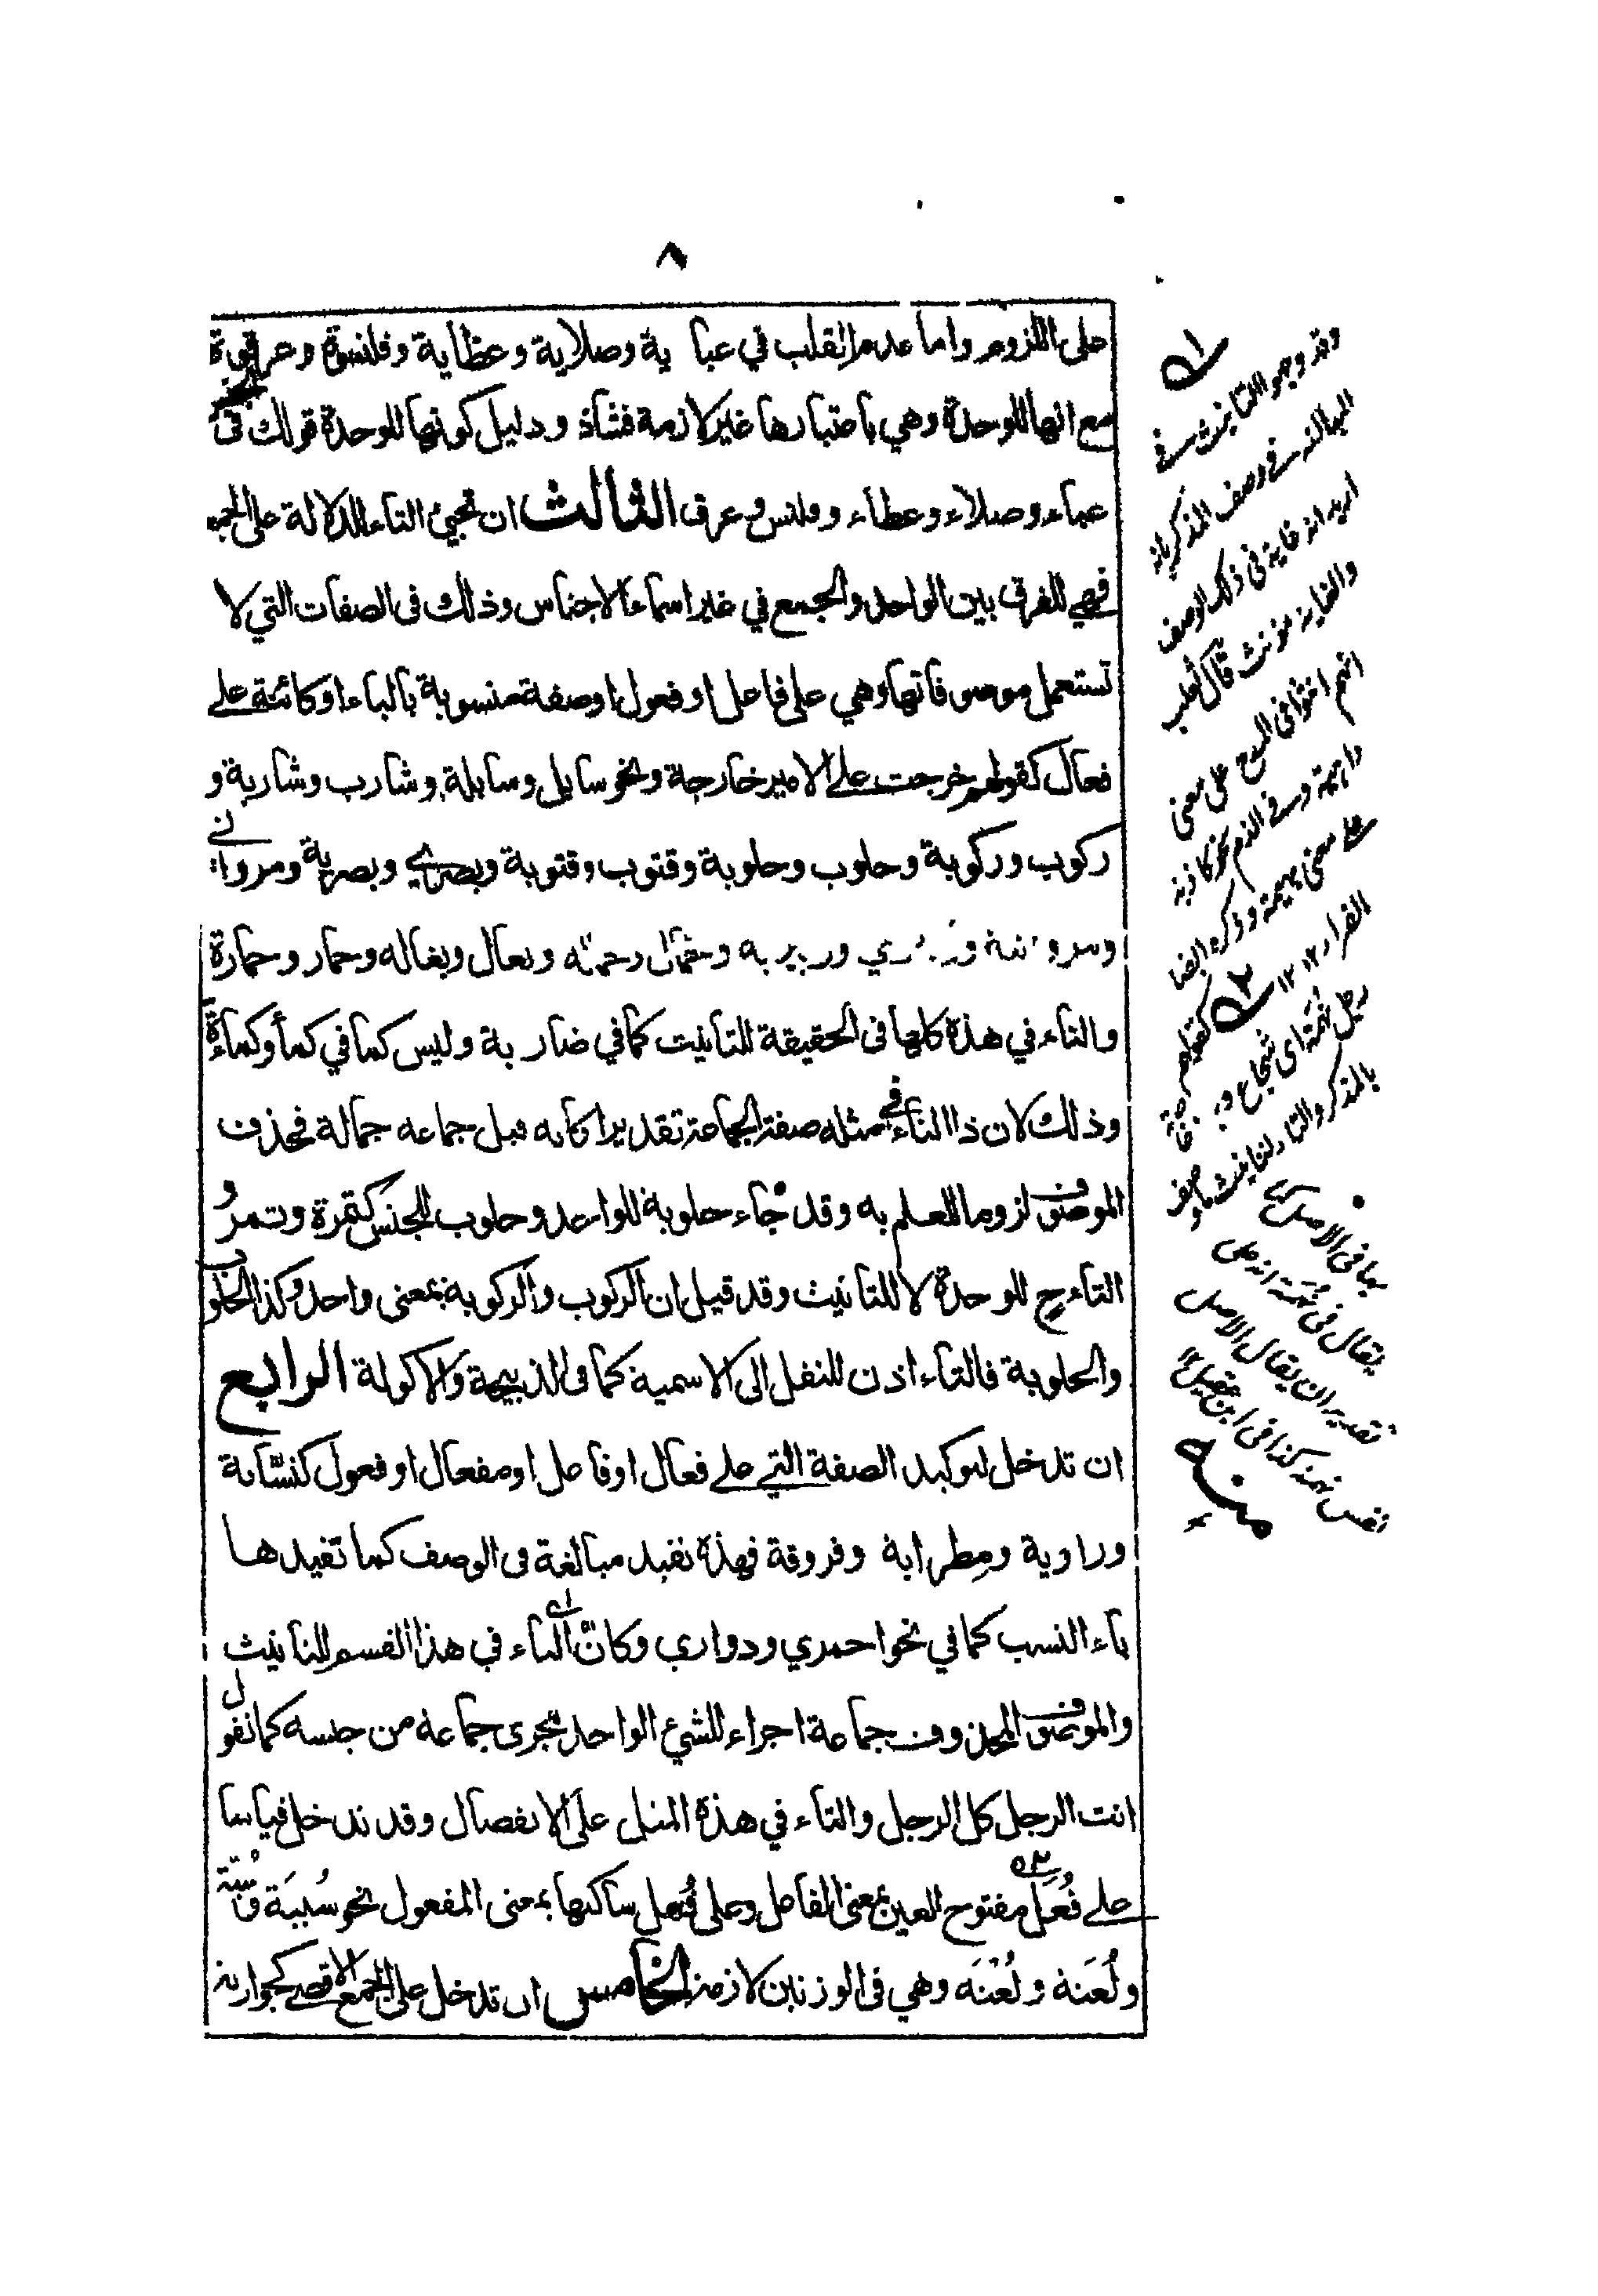 ٨
على اللزوم واما عدم القلب في عباية وصلاية وعظاية وقلنسوة وعرقوة
مع انها للوحدة وهي باعتبارها غير لازمة فشاذ ودليل كونها للوحدة قولك في
عباء وصلاء وعظاء وقلنس وعرق الثالث ان تجيئ التاء للدلالة على الجمع
فهي للفرق بين الواحد والجمع في غير اسماء الاجناس وذلك في الصفات التي لا
تستعمل موصوفاتها وهي على فاعل او فعول او صفة منسوبة بالياء او كائنة على
فعال كقولهم خرجت على الامير خارجة ونحو سايل وسايلة وشارب وشاربة و
ركوب وركوبة وحلوب وحلوبة وقتوب وقتوبة وبصري وبصرية ومرواني
ومروانية وزبيري وزبيرية وجمال وجمالة وبغال وبغاله وحمار وحمارة
والتاء في هذه كلها في الحقيقة للتانيث كما في ضاربة وليس كما في كمأ وكماءة
وذلك لان ذا التاء في مثله صفة الجماعة تقديرا كانه قيل جماعه جمالة فحذف
الموصوف لزوما للعلم به وقد جاء حلوبة للواحد وحلوب للجنس كتمرة وتمر و
التاء ح للوحدة لا للتانيث وقد قيل ان الركوب والركوبة بمعنى واحد وكذا الحلوب
والحلوبة فالتاء اذن للنقل الى الاسمية كما في الذبيحة والاكولة الرابع
ان تدخل لتوكيد الصفة التي على فعال او فاعل او مفعال او فعول كنسّابة
وراوية ومطرابة وفروقة فهذه تفيد مبالغة في الوصف كما تفيدها
ياء النسب كما في نحو احمري ودواري وكانّ التاء في هذا القسم للتانيث
والموصوف المحذوف جماعة اجراء للشيء الواحد مجرى جماعة من جنسه كما تقول
انت الرجل كل الرجل والتاء في هذه المثل على الانفصال وقد تدخل قياسا
على فُعَل مفتوح العين بمعنى الفاعل وعلى فُعْل ساكنها بمعنى المفعول نحو سُبَبَة
ولُعَنة ولُعْنَه وهي في الوزنين لازمة الخامس ان تدخل على الجمع الاقصى كجواربة
وقد وجهوا التانيث في
المبالغة في وصف المذكر بانه
اريد انه غاية في ذلك الوصف
والغاية مؤنث قال ثعلب
انهم انثوا في المدح على معنى
داهية وفي الذم
على معنى بهيمة وذكره ايضا
الفراء ١٢
٢ كقولهم
رجل بُهمة اى شجاع
بالمذكر والتاء لتانيث
بها في الاصل
يقال في بُهمَة انه في
الاصل
نقص
منه